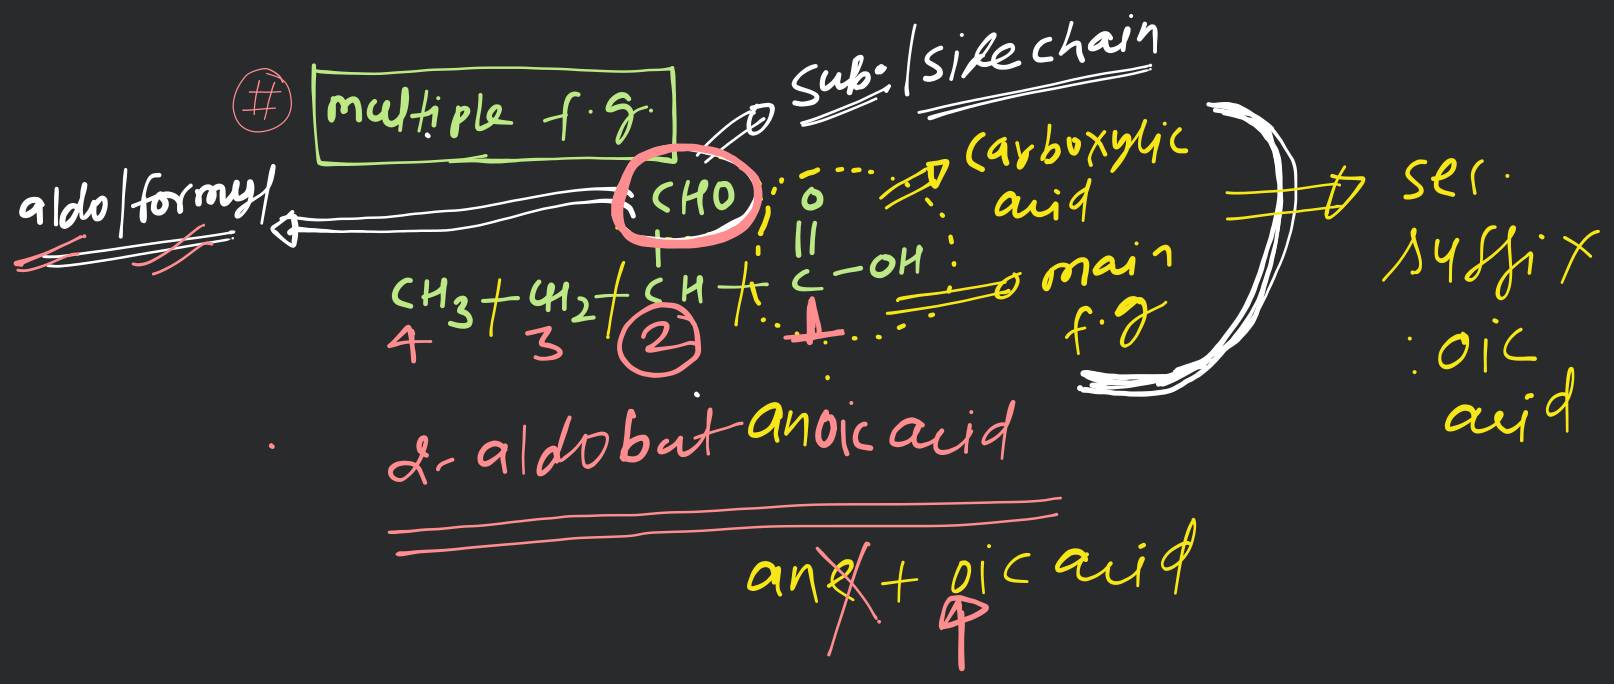 # multiple f.g.
sub. / side chain
aldo/formyl
CHO
O
||
carboxylic acid
CH3 - CH2 - CH - C - OH
main f.g
4 3 2 1
sec. suffix
: oic acid
2-aldobutanoic acid
ane + oic acid